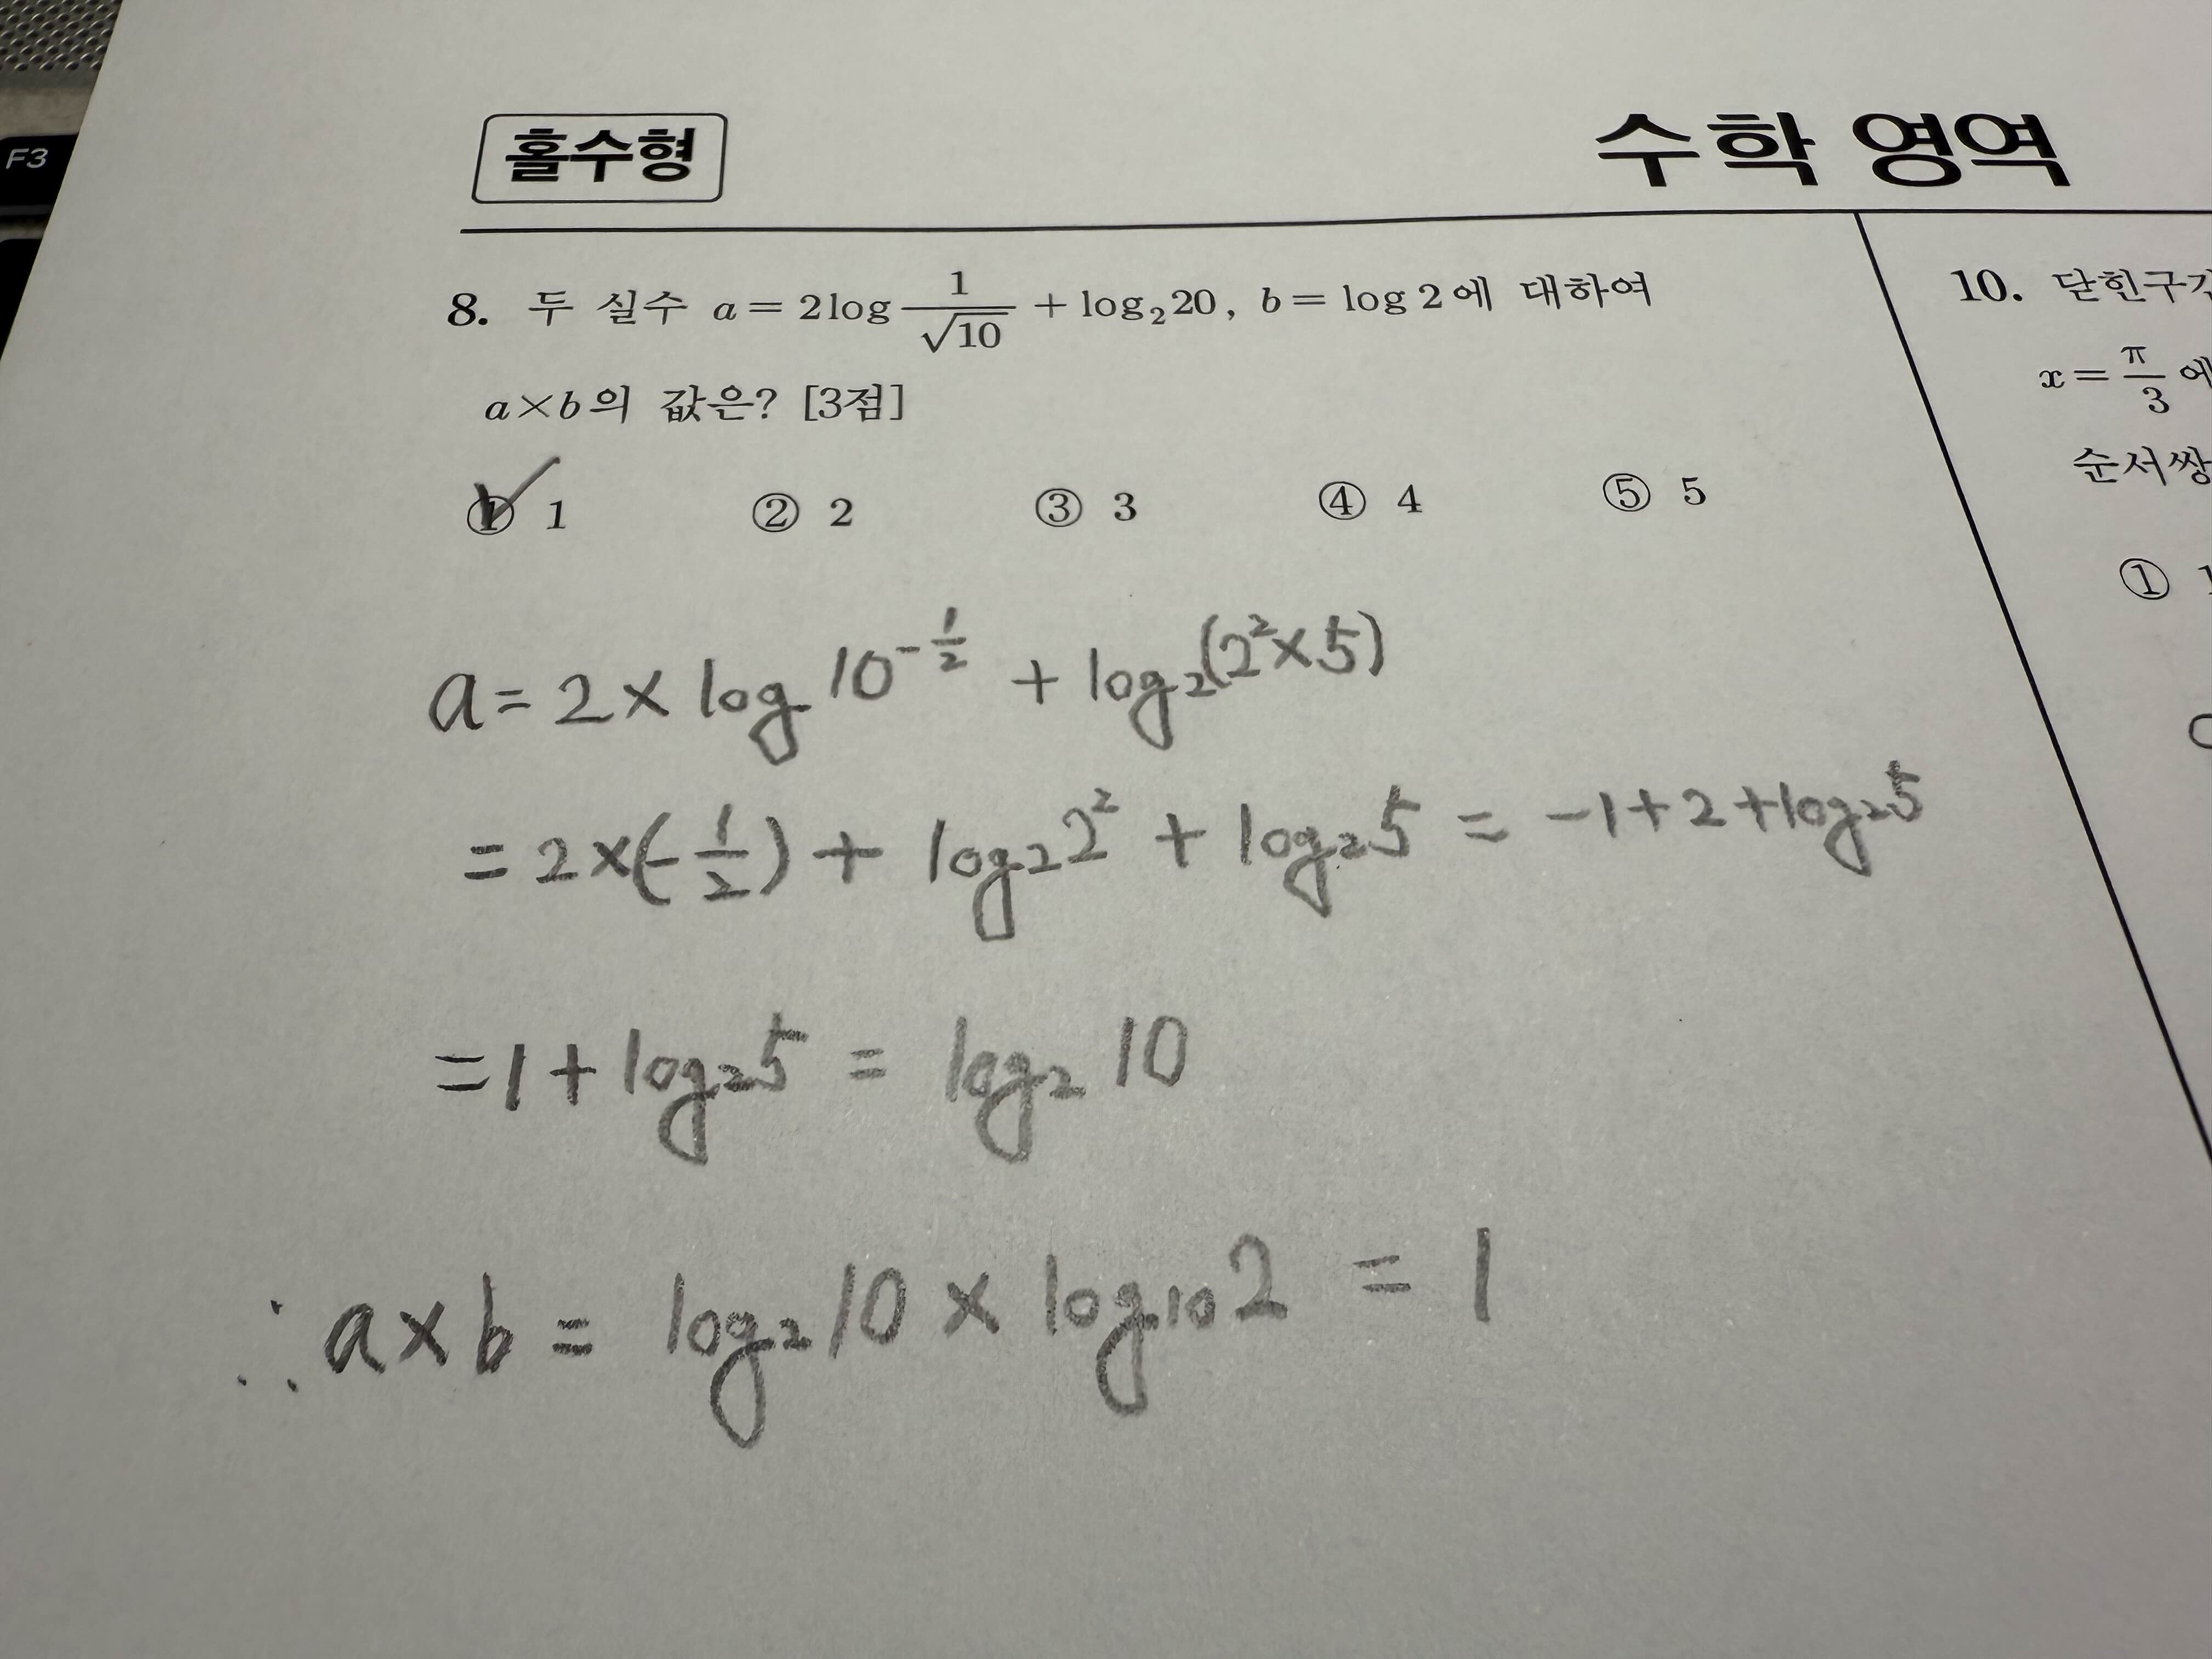 F3
홀수형
수학 영역
8. 두 실수 a = 2log 1/√10 + log₂20, b = log 2에 대하여
a×b의 값은? [3점]
① 1 ② 2 ③ 3 ④ 4 ⑤ 5
a = 2 × log 10^(-1/2) + log₂(2²×5)
= 2×(-1/2) + log₂2² + log₂5 = -1+2+log₂5
= 1 + log₂5 = log₂10
∴ a×b = log₂10 × log₁₀2 = 1
10. 닫힌구간
x = π/3 에
순서쌍
①